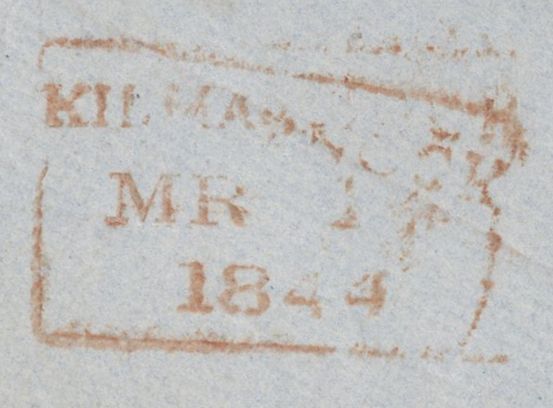 KILMARNOCK
MR 1
1844